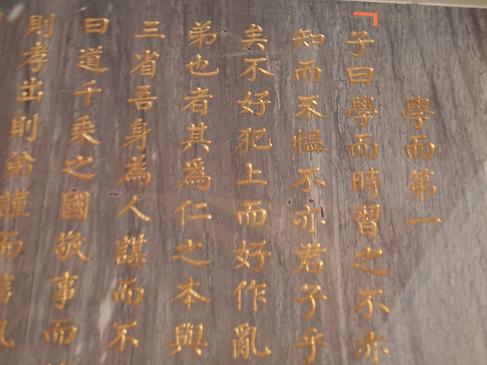 學而第一
子曰學而時習之不亦
知而不慍不亦君子乎
矣不好犯上而好作亂
弟也者其為仁之本與
三省吾身為人謀而不
曰道千乘之國敬事而
則孝出則弟謹而信汎